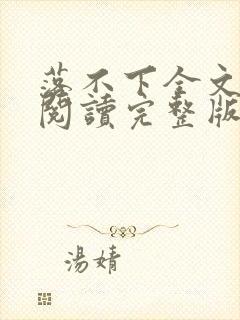 落不下全文
閱讀完整版
湯婧